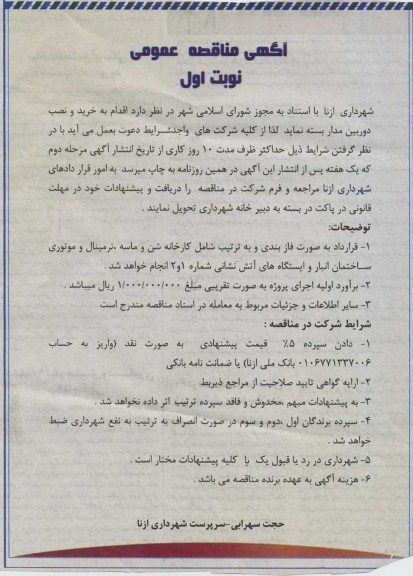 آگهی مناقصه عمومی
نوبت اول
شهرداری ازنا با استناد به مجوز شورای اسلامی شهر در نظر دارد اقدام به خرید و نصب
دوربین مدار بسته نماید لذا از کلیه شرکت های واجدشـرایط دعوت بعمل می آید با در
نظر گرفتن شرایط ذیل حداکثر ظرف مدت ۱۰ روز کاری از تاریخ انتشار آگهی مرحله دوم
که یک هفته پس از انتشار این آگهی در همین روزنامه به چاپ میرسد به امور قرار دادهای
شهرداری ازنا مراجعه و فرم شرکت در مناقصه را دریافت و پیشنهادات خود در مهلت
قانونی در پاکت در بسته به دبیر خانه شهرداری تحویل نمایند .
توضیحات:
۱- قرارداد به صورت فاز بندی و به ترتیب شامل کارخانه شن و ماسه ،ترمینال و موتوری
ساختمان انبار و ایستگاه های آتش نشانی شماره ۱و۲ انجام خواهد شد .
۲- برآورد اولیه اجرای پروژه به صورت تقریبی مبلغ ۱/۰۰۰/۰۰۰/۰۰۰ ریال میباشد .
۳- سایر اطلاعات و جزئیات مربوط به معامله در اسناد مناقصه مندرج است
شرایط شرکت در مناقصه :
۱- دادن سپرده ۵٪ قیمت پیشنهادی به صورت نقد (واریز به حساب
۰۱۰۶۷۷۱۳۳۷۰۰۶ بانک ملی ازنا) یا ضمانت نامه بانکی
۲- ارایه گواهی تایید صلاحیت از مراجع ذیربط
۳- به پیشنهادات مبهم ،مخدوش و فاقد سپرده ترتیب اثر داده نخواهد شد .
۴- سپرده برندگان اول ،دوم و سوم در صورت انصراف به ترتیب به نفع شهرداری ضبط
خواهد شد .
۵- شهرداری در رد یا قبول یک یا کلیه پیشنهادات مختار است .
۶- هزینه آگهی به عهده برنده مناقصه می باشد .
حجت سهرابی-سرپرست شهرداری ازنا